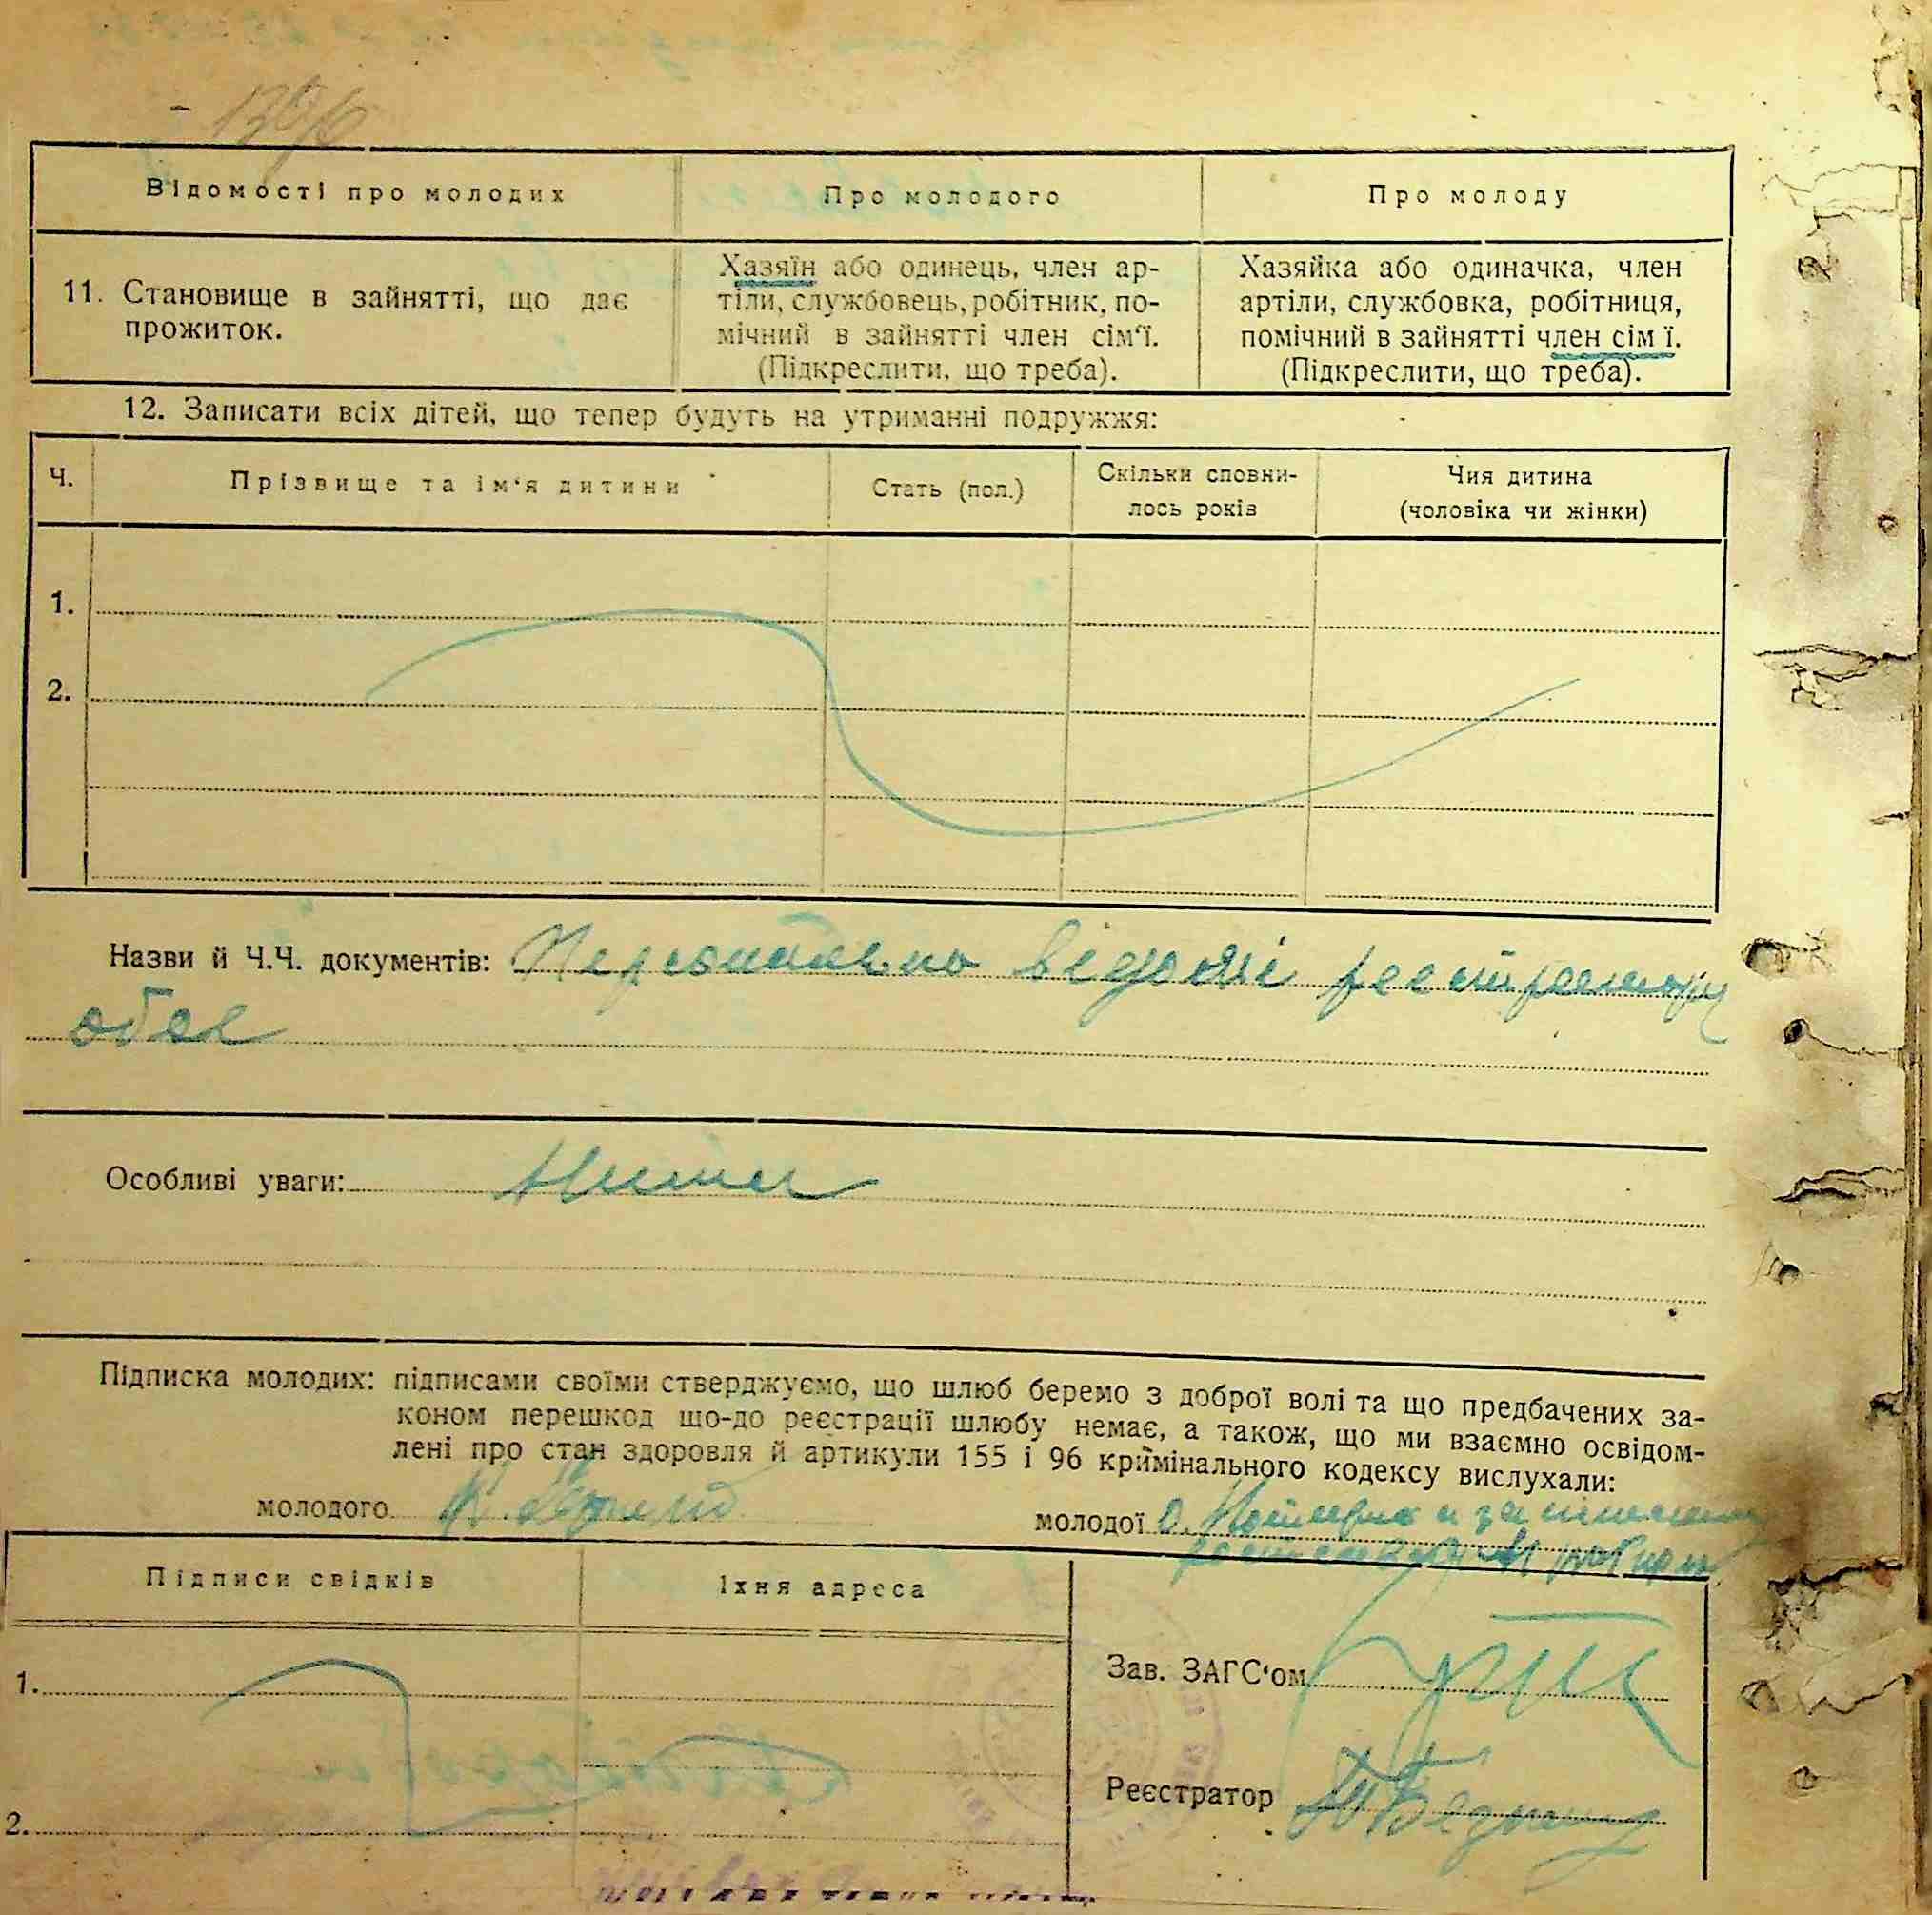 Відомості про молодих Про молодого Про молоду
11. Становище в зайнятті, що дає прожиток.
Хазяїн або одинець, член ар-
тіли, службовець, робітник, по-
мічний в зайнятті член сім'ї.
(Підкреслити, що треба).
Хазяйка або одиначка, член
артіли, службовка, робітниця,
помічний в зайнятті член сім ї.
(Підкреслити, що треба).
12. Записати всіх дітей, що тепер будуть на утриманні подружжя:
Ч. Прізвище та ім'я дитини Стать (пол.) Скільки сповни-лось років Чия дитина (чоловіка чи жінки)
1.
2.
Назви й Ч.Ч. документів: Персонально відомі реєстратору
обоє
Особливі уваги:
Підписка молодих: підписами своїми стверджуємо, що шлюб беремо з доброї волі та що предбачених за-
коном перешкод що-до реєстрації шлюбу немає, а також, що ми взаємно освідом-
лені про стан здоровля й артикули 155 і 96 кримінального кодексу вислухали:
молодого
молодої О.
Підписи свідків Їхня адреса
1.
Зав. ЗАГС'ом
Реєстратор
2.